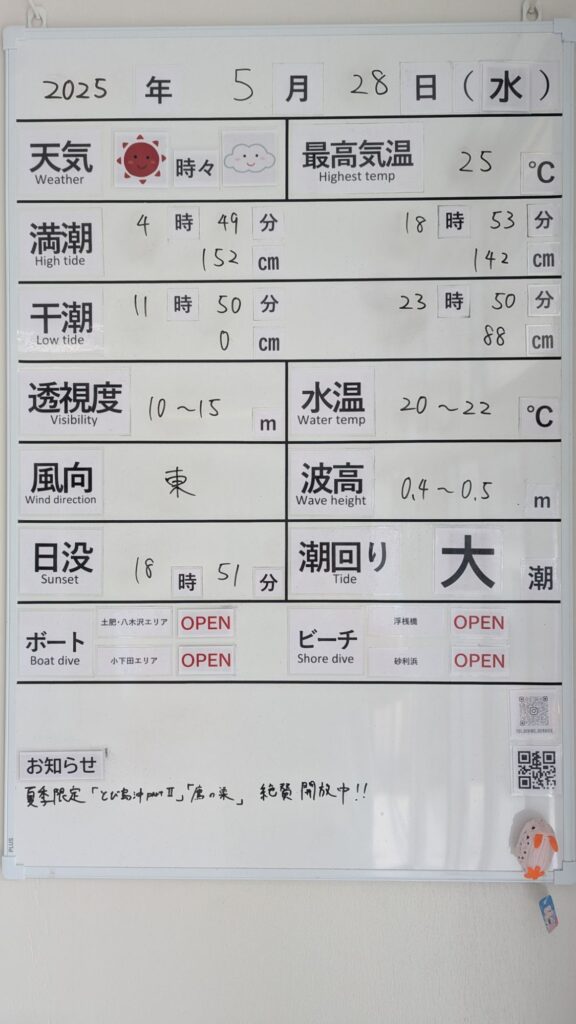 2025 年 5 月 28 日 (水)
天気 時々 最高気温 25 ℃
Weather Highest temp
満潮 4 時 49 分 18 時 53 分
High tide 152 cm 142 cm
干潮 11 時 50 分 23 時 50 分
Low tide 0 cm 88 cm
透視度 10～15 m 水温 20～22 ℃
Visibility Water temp
風向 東 波高 0.4～0.5 m
Wind direction Wave height
日没 18 時 51 分 潮回り 大 潮
Sunset Tide
ボート 土肥・八木沢エリア OPEN ビーチ 浮桟橋 OPEN
Boat dive 小下田エリア OPEN Shore dive 砂利浜 OPEN
お知らせ
夏季限定「とび島沖partⅡ」「鷹の巣」 絶賛開放中!!
PLUS